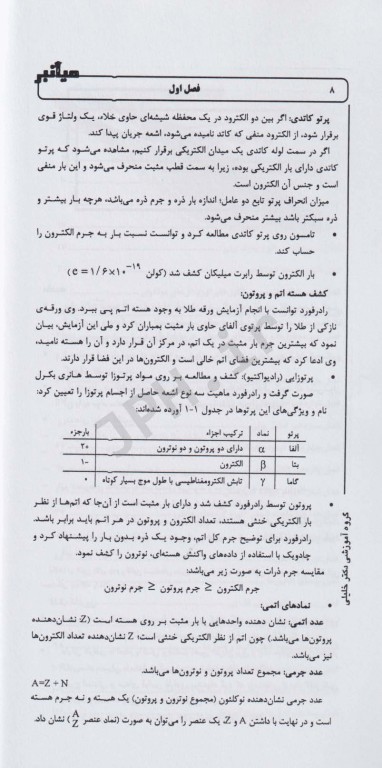 میانبر
فصل اول
۸
پرتو کاتدی: اگر بین دو الکترود در یک محفظه شیشه‌ای حاوی خلاء، یک ولتاژ قوی
برقرار شود، از الکترود منفی که کاتد نامیده می‌شود، اشعه جریان پیدا کند.
اگر در سمت لوله کاتدی یک میدان الکتریکی برقرار کنیم، مشاهده می‌شود که پرتو
کاتدی دارای بار الکتریکی بوده، زیرا به سمت قطب مثبت منحرف می‌شود و این بار منفی
است و جنس آن الکترون است.
میزان انحراف پرتو تابع دو عامل؛ اندازه بار ذره و جرم ذره می‌باشد، هرچه بار بیشتر و
ذره سبکتر باشد بیشتر منحرف می‌شود.
• تامسون روی پرتو کاتدی مطالعه کرد و توانست نسبت بار به جرم الکترون را
حساب کند.
• بار الکترون توسط رابرت میلیکان کشف شد (کولن e = ۱/۶×۱۰⁻¹⁹)
کشف هسته اتم و پروتون:
رادرفورد توانست با انجام آزمایش ورقه طلا به وجود هسته اتم پی ببرد. وی ورقه‌ی
نازکی از طلا را توسط پرتوی آلفای حاوی بار مثبت بمباران کرد و طی این آزمایش، بیان
نمود که بیشترین جرم بار مثبت در یک اتم، در مرکز آن قرار دارد و آن را هسته نامید،
وی ادعا کرد که بیشترین فضای اتم خالی است و الکترون‌ها در این فضا قرار دارند.
• پرتوزایی (رادیواکتیو): کشف و مطالعه بر روی مواد پرتوزا توسط هانری بکرل
صورت گرفت و رادرفورد ماهیت سه نوع اشعه حاصل از اجسام پرتوزا را تعیین کرد:
نام و ویژگی‌های این پرتوها در جدول ۱-۱ آورده شده‌اند:
پرتو نماد ترکیب اجزاء بارجزء
آلفا α دارای دو پروتون و دو نوترون ۲+
بتا β الکترون ۱-
گاما γ تابش الکترومغناطیسی با طول موج بسیار کوتاه ۰
• پروتون توسط رادرفورد کشف شد و دارای بار مثبت است از آن‌جا که اتم‌ها از نظر
بار الکتریکی خنثی هستند، تعداد الکترون و پروتون در هر اتم باید برابر باشد.
رادرفورد برای توضیح جرم کل اتم، وجود یک ذره بدون بار را پیشنهاد کرد و
چادویک با استفاده از داده‌های واکنش هسته‌ای، نوترون را کشف نمود.
مقایسه جرم ذرات به صورت زیر می‌باشد:
جرم الکترون ≤ جرم پروتون ≤ جرم نوترون
• نمادهای اتمی:
عدد اتمی: نشان دهنده واحدهایی با بار مثبت بر روی هسته است (Z: نشان‌دهنده
پروتون‌ها می‌باشد.) چون اتم از نظر الکتریکی خنثی است؛ Z نشان‌دهنده تعداد الکترون‌ها
نیز می‌باشد.
عدد جرمی: مجموع تعداد پروتون و نوترون‌ها می‌باشد.
A=Z + N
عدد جرمی نشان‌دهنده نوکلئون (مجموع نوترون و پروتون) یک هسته و نه جرم هسته
است و در نهایت با داشتن A و Z، یک عنصر را می‌توان به صورت (نماد عنصر A/Z) نشان داد.
گروه آموزشی دکتر خلیلی